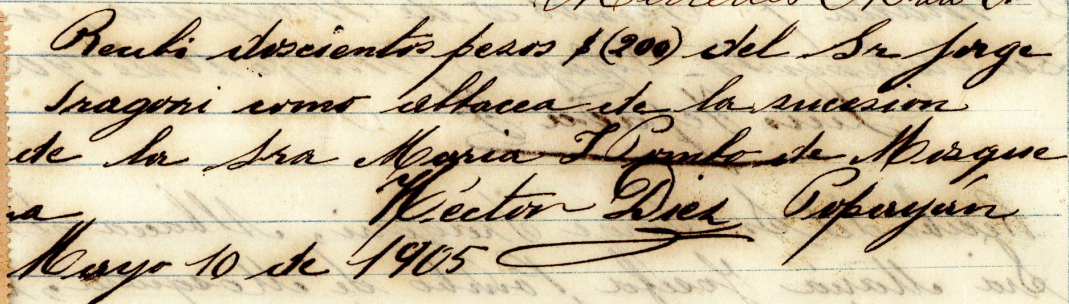 Recibi doscientos pesos $ (200) del Sr Jorge
Iragorri como albacea de la sucesion
de la Sra Maria J Pombo de Mosque
ra Héctor Diez Popayán
Mayo 10 de 1905